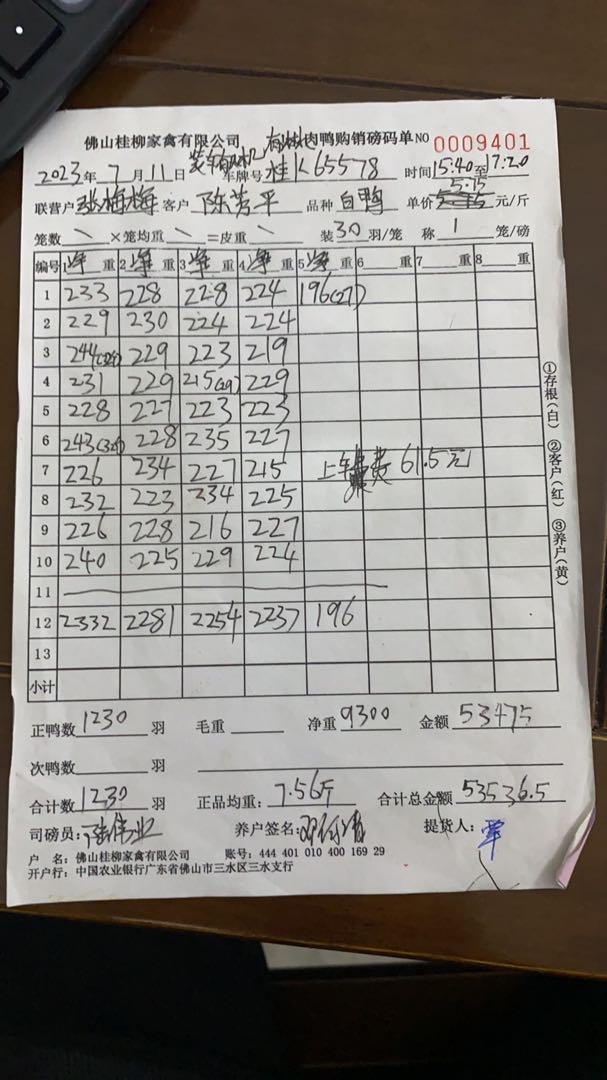 佛山桂柳家禽有限公司 肉鸭购销磅码单 NO 0009401
2023年 7月 11日 车牌号 桂K65578 时间 15:40至17:20
5.75
联营户 张梅梅 客户 陈芳平 品种 白鸭 单价 元/斤
笼数 \ ×笼均重 \ =皮重 \ 装30羽/笼 称 1 笼/磅
编号 1净重 2净重 3净重 4净重 5净重 6 重 7 重 8 重
1 233 228 228 224 196(27)
2 229 230 224 224
3 244 229 223 219
4 231 229 215(29) 229
5 228 227 223 223
6 243 228 235 227
7 226 234 227 215 上车费 61.5元
8 232 223 234 225
9 226 228 216 227
10 240 225 229 224
11
12 2332 2281 2254 2237 196
13
小计
正鸭数 1230 羽 毛重 净重 9300 金额 53475
次鸭数 羽
合计数 1230 羽 正品均重: 7.56斤 合计总金额 53536.5
司磅员: 伟业 养户签名: 提货人:
户 名: 佛山桂柳家禽有限公司 账号: 444 401 010 400 169 29
开户行: 中国农业银行广东省佛山市三水区三水支行
①存根(白) ②客户(红) ③养户(黄)